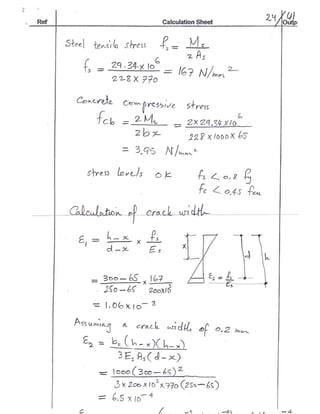 Ref Calculation Sheet 24/41
Outp
Steel tensile stress fs = Ms
z As
fs = 29.34 x 10⁶ = 167 N/mm²
228 x 770
Concrete compressive stress
fcb = 2 Ms = 2 x 29.34 x 10⁶
z b x 228 x 1000 x 65
= 3.95 N/mm²
stress levels ok fs < 0.8 fy
fc < 0.45 fcu
Calculation of crack width
ε1 = h - x x fs
d - x Es
x d h
= 300 - 65 x 167
250 - 65 200x10³
εs = fs
Es
= 1.06 x 10⁻³
Assuming a crack width of 0.2 mm
ε2 = bt (h - x)(h - x)
3 Es As (d - x)
= 1000 (300 - 65)²
3 x 200 x 10³ x 770 (250 - 65)
= 6.5 x 10⁻⁴